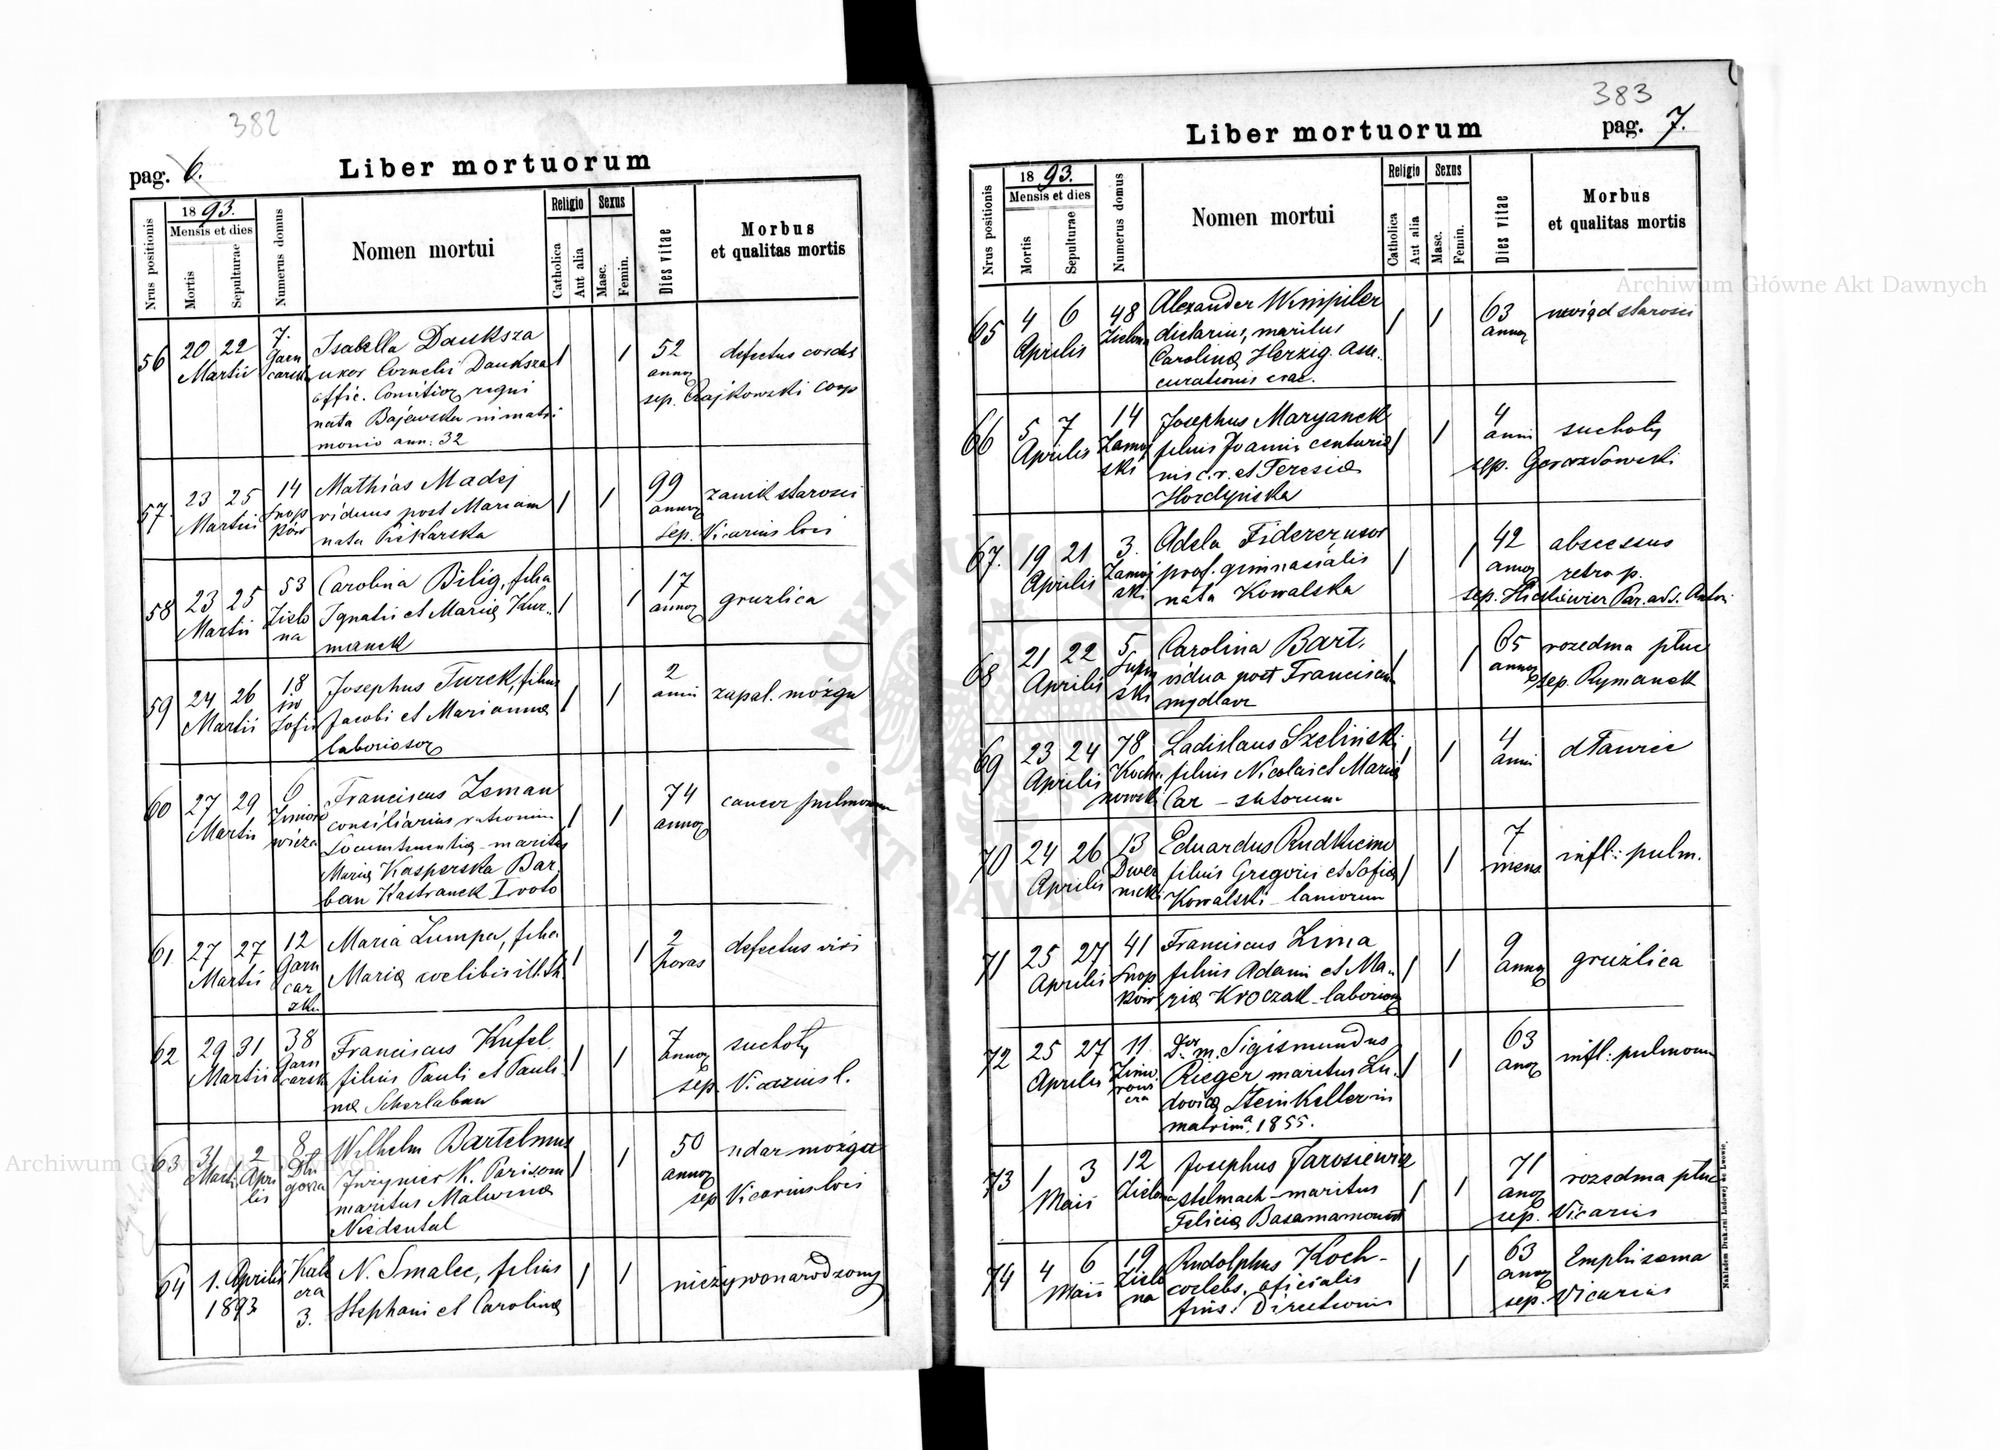 382
pag. 6.
Liber mortuorum
Nrus positionis
1893.
Mensis et dies
Mortis
Sepulturae
Numerus domus
Nomen mortui
Religio
Catholica
Aut alia
Sexus
Masc.
Femin.
Dies vitae
Morbus
et qualitas mortis
56 20 22 Martii 7.
Isabella Dauksza
uxor Cornelii Dauksza
offic. Comitior regni
nata Bajewska in matri
monio ann: 32
1 1 52 annor defectus cordis
sep. Czajkowski coop
57 23 25 Martii 14 Snop
ków
Mathias Madej
viduus post Mariam
nata Piekarska
1 1 99 annor zanik starosci
sep. Vicarius loci
58 23 25 Martii 53 Zielo
na
Carolina Bilig, filia
Ignatii et Mariæ Kur-
manek
1 1 17 annor gruzlica
59 24 26 Martii 18 św
Zofii
Josephus Turek, filius
Jacobi et Mariannæ
laboriosor
1 1 2 anni zapal. mózgu
60 27 29 Martii 6 Zimoro
wicza
Franciscus Zeman
consiliarius rationum
maritus
Mariæ Kasperska Bar
ban Kastranek I voto
1 1 74 annor cancer pulmonum
61 27 27 Martii 12 Garn
car
ska
Maria Lumpa, filia
Mariæ coelibis ill. th.
1 1 2 horas defectus viri
62 29 31 Martii 38 Garn
carsk
Franciscus Kufel
filius Pauli et Pauli-
næ Scherlaban
1 1 7 annor suchoty
sep. Vicarius l.
63 31 Marti 2 Apri
lis
8 Dłu
gosza
Wilhelm Bartelmus
Inżynier K. Parisom
maritus Malwinæ
Niedental
1 1 50 annor udar mózgu
sep Vicarius loci
64 1. Aprilis
1893
Kale
cra
3.
N. Smalec, filius
Stephani et Carolinæ
1 1 nieżywonarodzony
383
Liber mortuorum
pag. 7.
Nrus positionis
1893.
Mensis et dies
Mortis
Sepulturae
Numerus domus
Nomen mortui
Religio
Catholica
Aut alia
Sexus
Masc.
Femin.
Dies vitae
Morbus
et qualitas mortis
65 4 6 Aprilis 48 Zielona
Alexander Wimpiler
dietarius, maritus
Carolinæ Herzig. Asse
curationis crac.
1 1 63 annor uwiąd starosci
66 5 7 Aprilis 14 Zamoj
ski
Josephus Maryanek
filius Joannis centurio
nis c. r. et Teresiæ
Hordyńska
1 1 4 anni suchoty
sep. Gorazdowski
67. 19 21 Aprilis 3. Zamoj
ski
Adela Fiderer, uxor
prof. gimnasialis
nata Kowalska
1 1 42 annor abscessus
retro p.
sep. Par. ad S. Anton
68 21 22 Aprilis 5 Supiń
ski
Carolina Bart,
vidua post Franciscum
mydlarz
1 1 65 annor rozedma płuc
sep. Rymanek
69 23 24 Aprilis 78 Kocha
nowski
Ladislaus Szeliński
filius Nicolai et Mariæ
Car - sutorum
1 1 4 anni dławiec
70 24 26 Aprilis 13 Dwer
nicki
Eduardus Rudkiemi
filius Gregorii et Sofiæ
Kowalski - laniorum
1 1 7 mens infl: pulm.
71 25 27 Aprilis 41 Snop
ków
Franciscus Zima
filius Adami et Ma-
riæ Kroczak - laborios
1 1 9 annor gruźlica
72 25 27 Aprilis 11. Zimo
rowi
cza
Dor m. Sigismundus
Rieger maritus Lu-
dovicæ Steinkeller in
matrima. 1855.
1 1 63 anor infl: pulmonum
73 1 3 Maii 12 Zielona
Josephus Jarosiewicz
stelmach - maritus
Feliciæ Basamamonów
1 1 71 anor rozedma płuc
sep. Vicarius
74 4 6 Maii 19 Zielo
na
Rudolphus Koch -
coelebs, oficialis
fins: Directionis
1 1 63 annor Emphisema
sep. Vicarius
Nakładem Drukarni Ludowej we Lwowie.
Archiwum Główne Akt Dawnych
Archiwum Główne Akt Dawnych